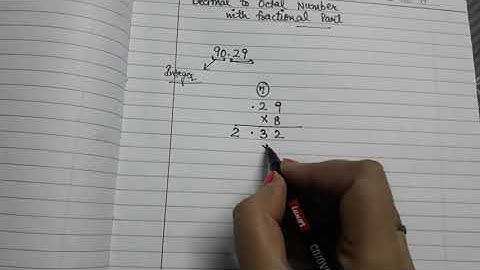 Decimal to Octal Number
with fractional Part
90.29
Integer
.29
x 8
2 .32
x